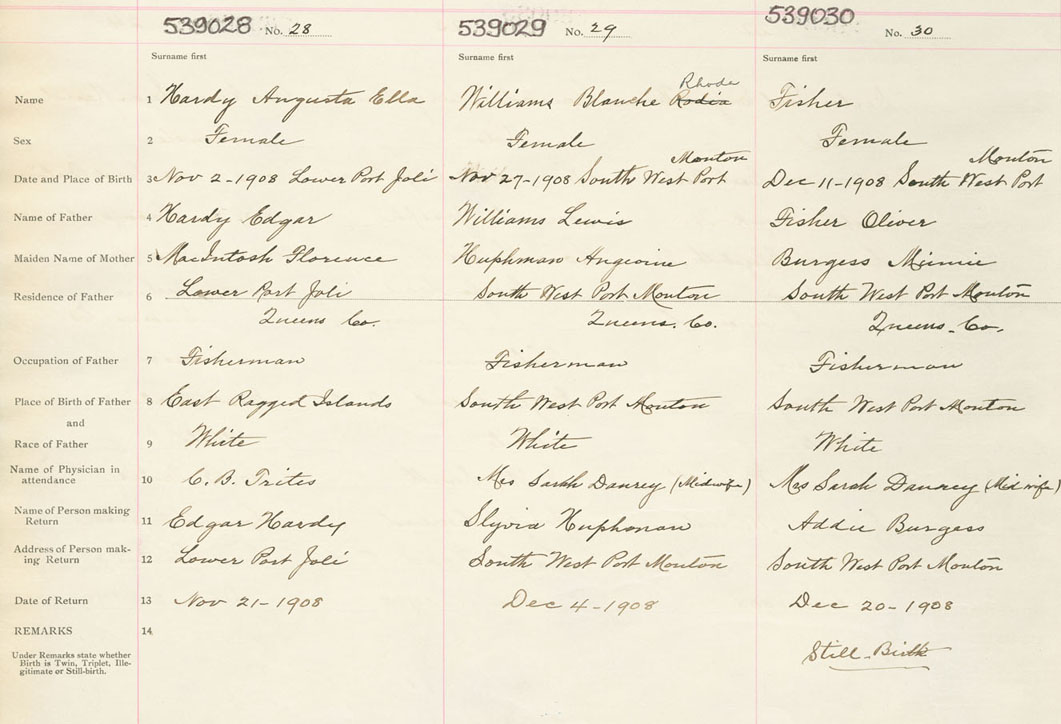 539028 No. 28 539029 No. 29 539030 No. 30
Surname first Surname first Surname first
Rhoda
Name 1 Hardy Augusta Ella Williams Blanche Rodia Fisher
Sex 2 Female Female Female
Mouton Mouton
Date and Place of Birth 3 Nov 2-1908 Lower Port Joli Nov 27-1908 South West Port Dec 11-1908 South West Port
Name of Father 4 Hardy Edgar Williams Lewis Fisher Oliver
Maiden Name of Mother 5 MacIntosh Florence Huphman Angioine Burgess Minnie
Residence of Father 6 Lower Port Joli South West Port Mouton South West Port Mouton
Queens Co. Queens. Co. Queens. Co.
Occupation of Father 7 Fisherman Fisherman Fisherman
Place of Birth of Father 8 East Ragged Islands South West Port Mouton South West Port Mouton
and
Race of Father 9 White White White
Name of Physician in
attendance 10 C. B. Trites Mrs Sarah Daurey (Midwife) Mrs Sarah Daurey (Midwife)
Name of Person making
Return 11 Edgar Hardy Slyvia Huphman Addie Burgess
Address of Person mak-
ing Return 12 Lower Port Joli South West Port Mouton South West Port Mouton
Date of Return 13 Nov 21-1908 Dec 4-1908 Dec 20-1908
REMARKS 14
Under Remarks state whether
Birth is Twin, Triplet, Ille-
gitimate or Still-birth.
Still-Birth